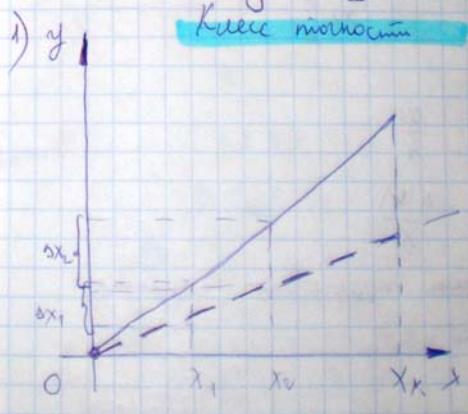 Класс точности
1)
y
Δx₂
Δx₁
0 x₁ x₂ xₖ x